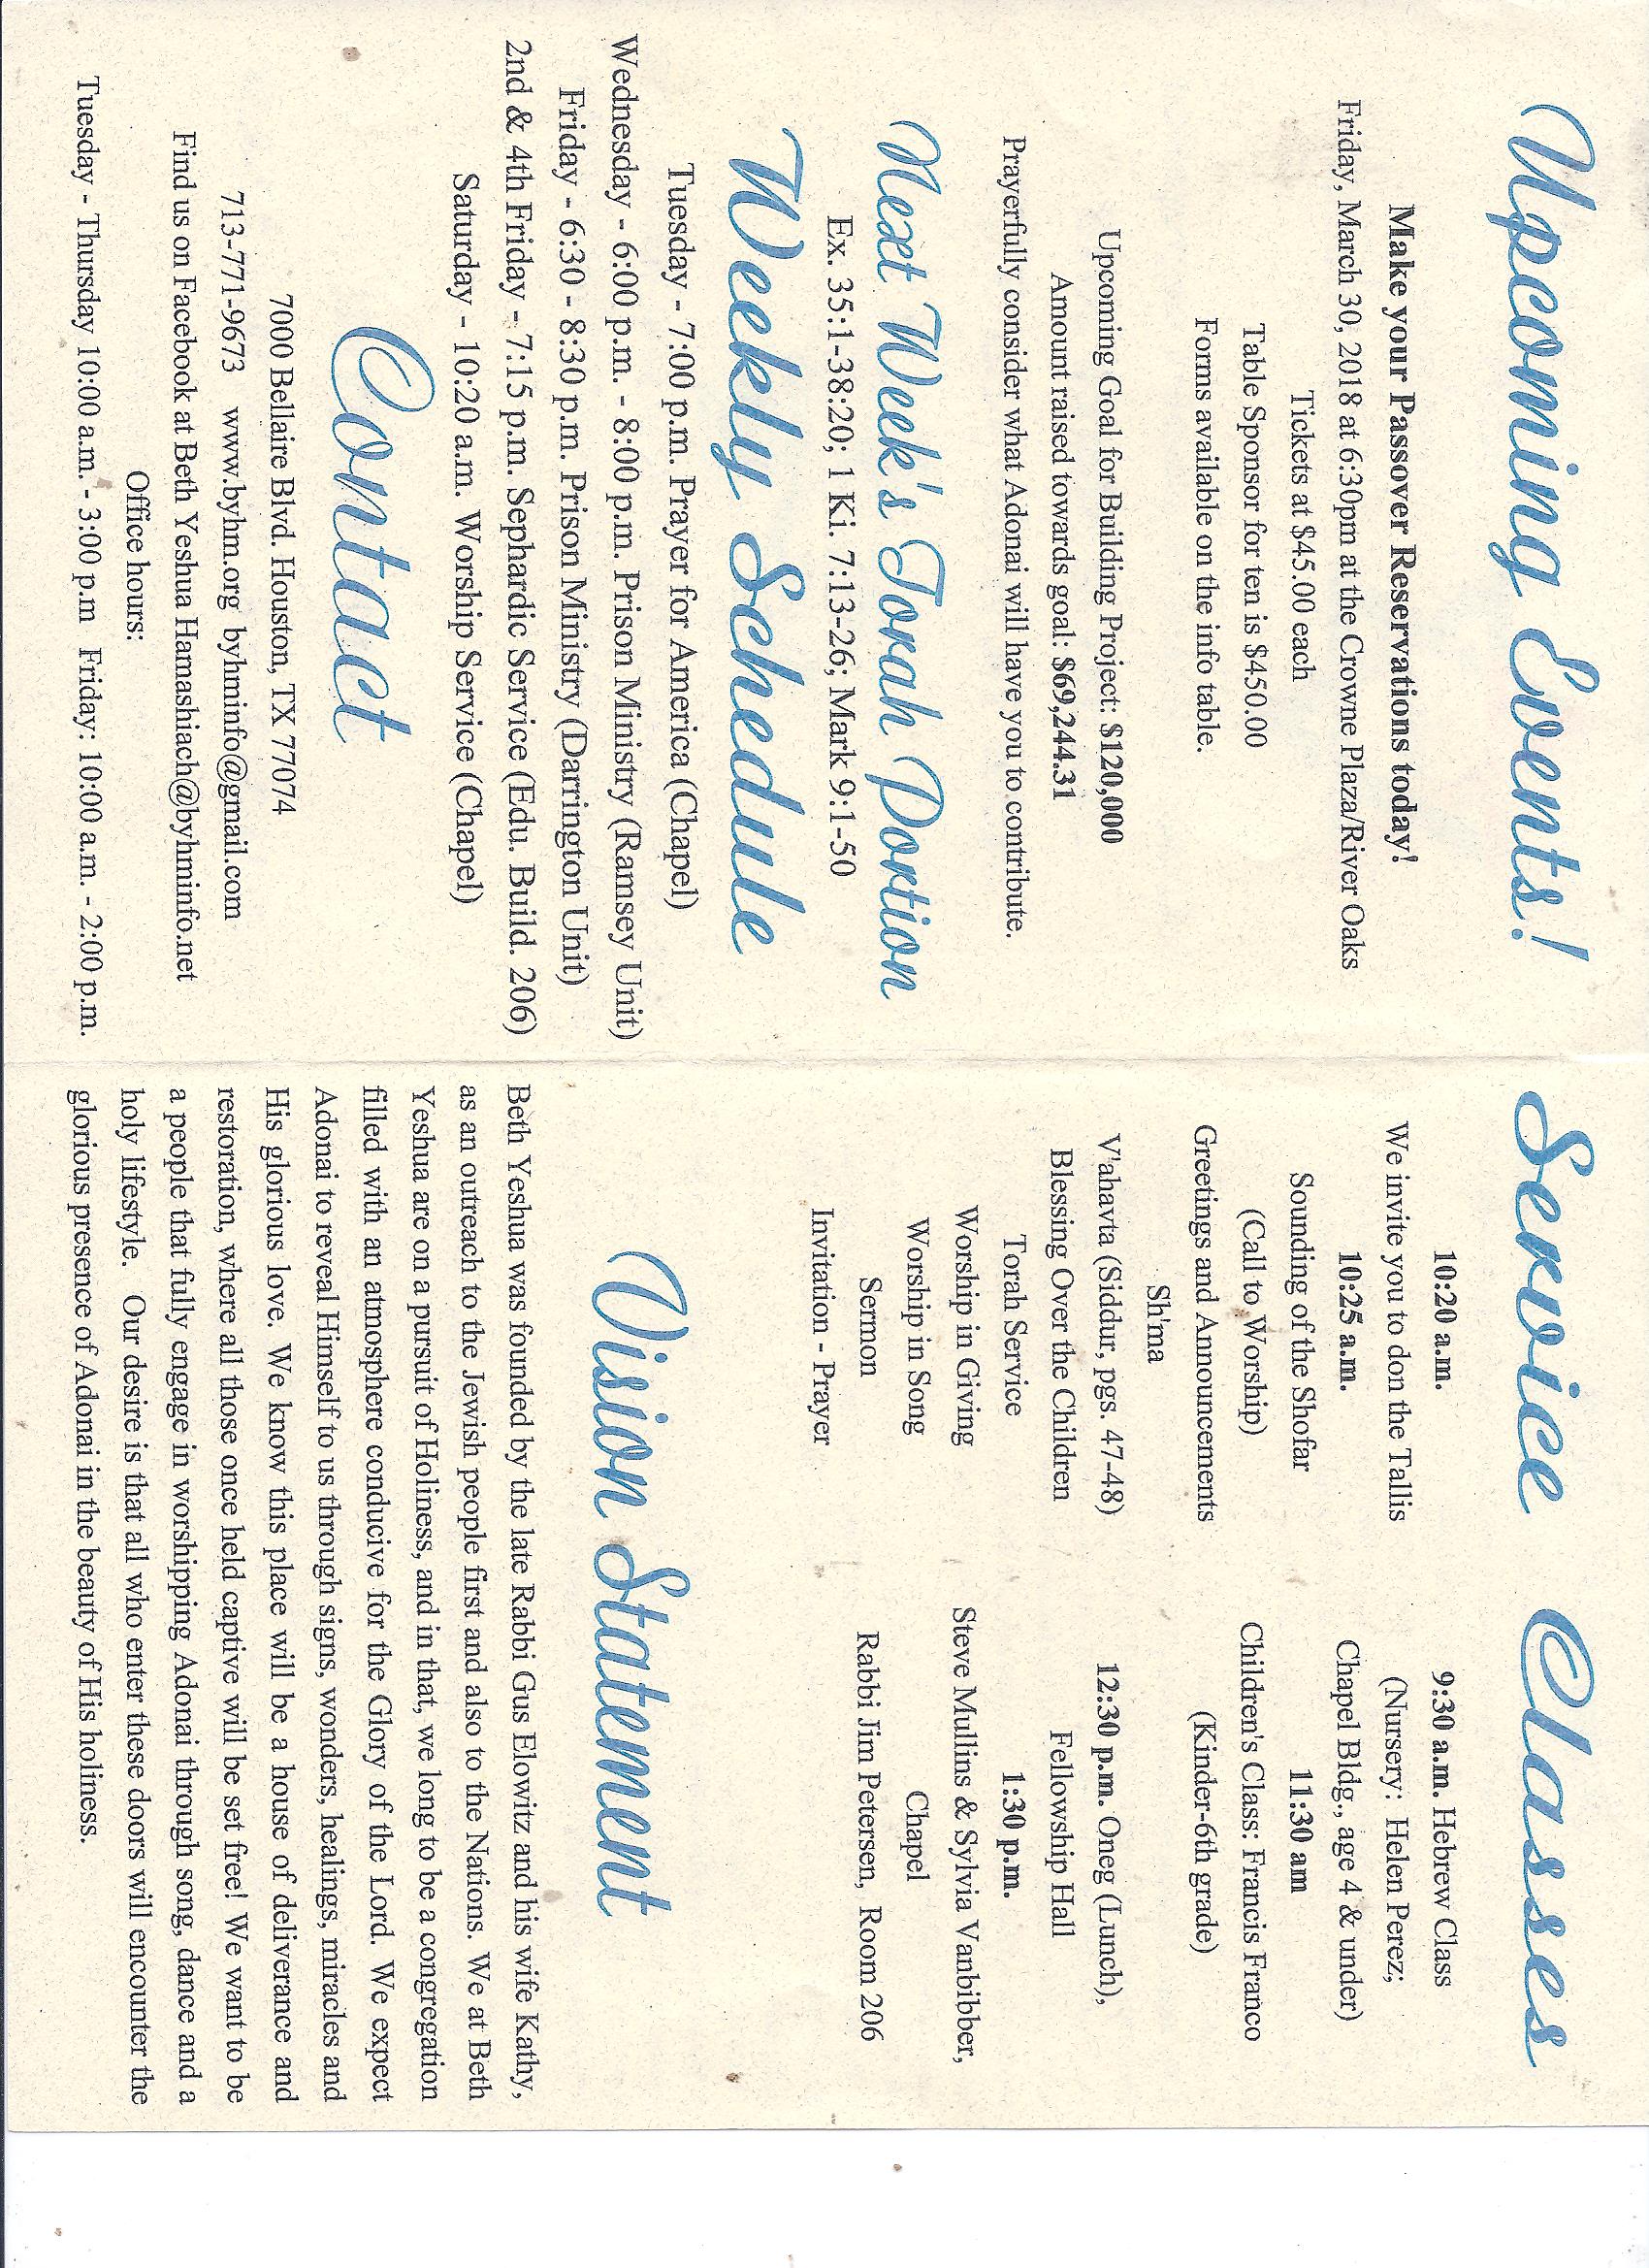 Upcoming Events!
Make your Passover Reservations today!
Friday, March 30, 2018 at 6:30pm at the Crowne Plaza/River Oaks
Tickets at $45.00 each
Table Sponsor for ten is $450.00
Forms available on the info table.
Upcoming Goal for Building Project: $120,000
Amount raised towards goal: $69,244.31
Prayerfully consider what Adonai will have you to contribute.
Next Week's Torah Portion
Ex. 35:1-38:20; 1 Ki. 7:13-26; Mark 9:1-50
Weekly Schedule
Tuesday - 7:00 p.m. Prayer for America (Chapel)
Wednesday - 6:00 p.m. - 8:00 p.m. Prison Ministry (Ramsey Unit)
Friday - 6:30 - 8:30 p.m. Prison Ministry (Darrington Unit)
2nd & 4th Friday - 7:15 p.m. Sephardic Service (Edu. Build. 206)
Saturday - 10:20 a.m. Worship Service (Chapel)
Contact
7000 Bellaire Blvd. Houston, TX 77074
713-771-9673 www.byhm.org byhminfo@gmail.com
Find us on Facebook at Beth Yeshua Hamashiach@byhminfo.net
Office hours:
Tuesday - Thursday 10:00 a.m. - 3:00 p.m Friday: 10:00 a.m. - 2:00 p.m.
Service
10:20 a.m.
We invite you to don the Tallis
10:25 a.m.
Sounding of the Shofar
(Call to Worship)
Greetings and Announcements
Sh'ma
V'ahavta (Siddur, pgs. 47-48)
Blessing Over the Children
Torah Service
Worship in Giving
Worship in Song
Sermon
Invitation - Prayer
Classes
9:30 a.m. Hebrew Class
(Nursery: Helen Perez;
Chapel Bldg., age 4 & under)
11:30 am
Children's Class: Francis Franco
(Kinder-6th grade)
12:30 p.m. Oneg (Lunch),
Fellowship Hall
1:30 p.m.
Steve Mullins & Sylvia Vanbibber,
Chapel
Rabbi Jim Petersen, Room 206
Vision Statement
Beth Yeshua was founded by the late Rabbi Gus Elowitz and his wife Kathy,
as an outreach to the Jewish people first and also to the Nations. We at Beth
Yeshua are on a pursuit of Holiness, and in that, we long to be a congregation
filled with an atmosphere conducive for the Glory of the Lord. We expect
Adonai to reveal Himself to us through signs, wonders, healings, miracles and
His glorious love. We know this place will be a house of deliverance and
restoration, where all those once held captive will be set free! We want to be
a people that fully engage in worshipping Adonai through song, dance and a
holy lifestyle. Our desire is that all who enter these doors will encounter the
glorious presence of Adonai in the beauty of His holiness.